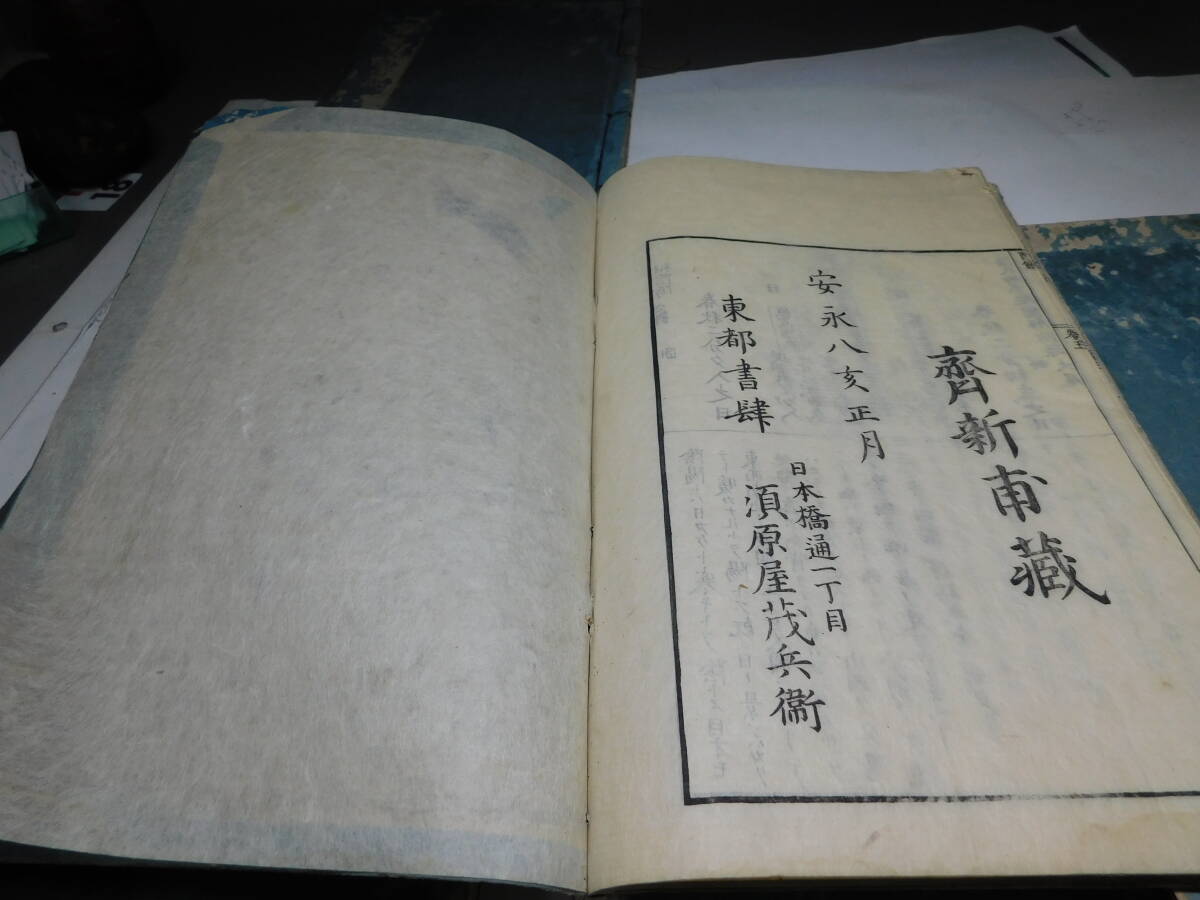 齊新甫藏
安永八亥正月
東都書肆
日本橋通一丁目
須原屋茂兵衞
卷五